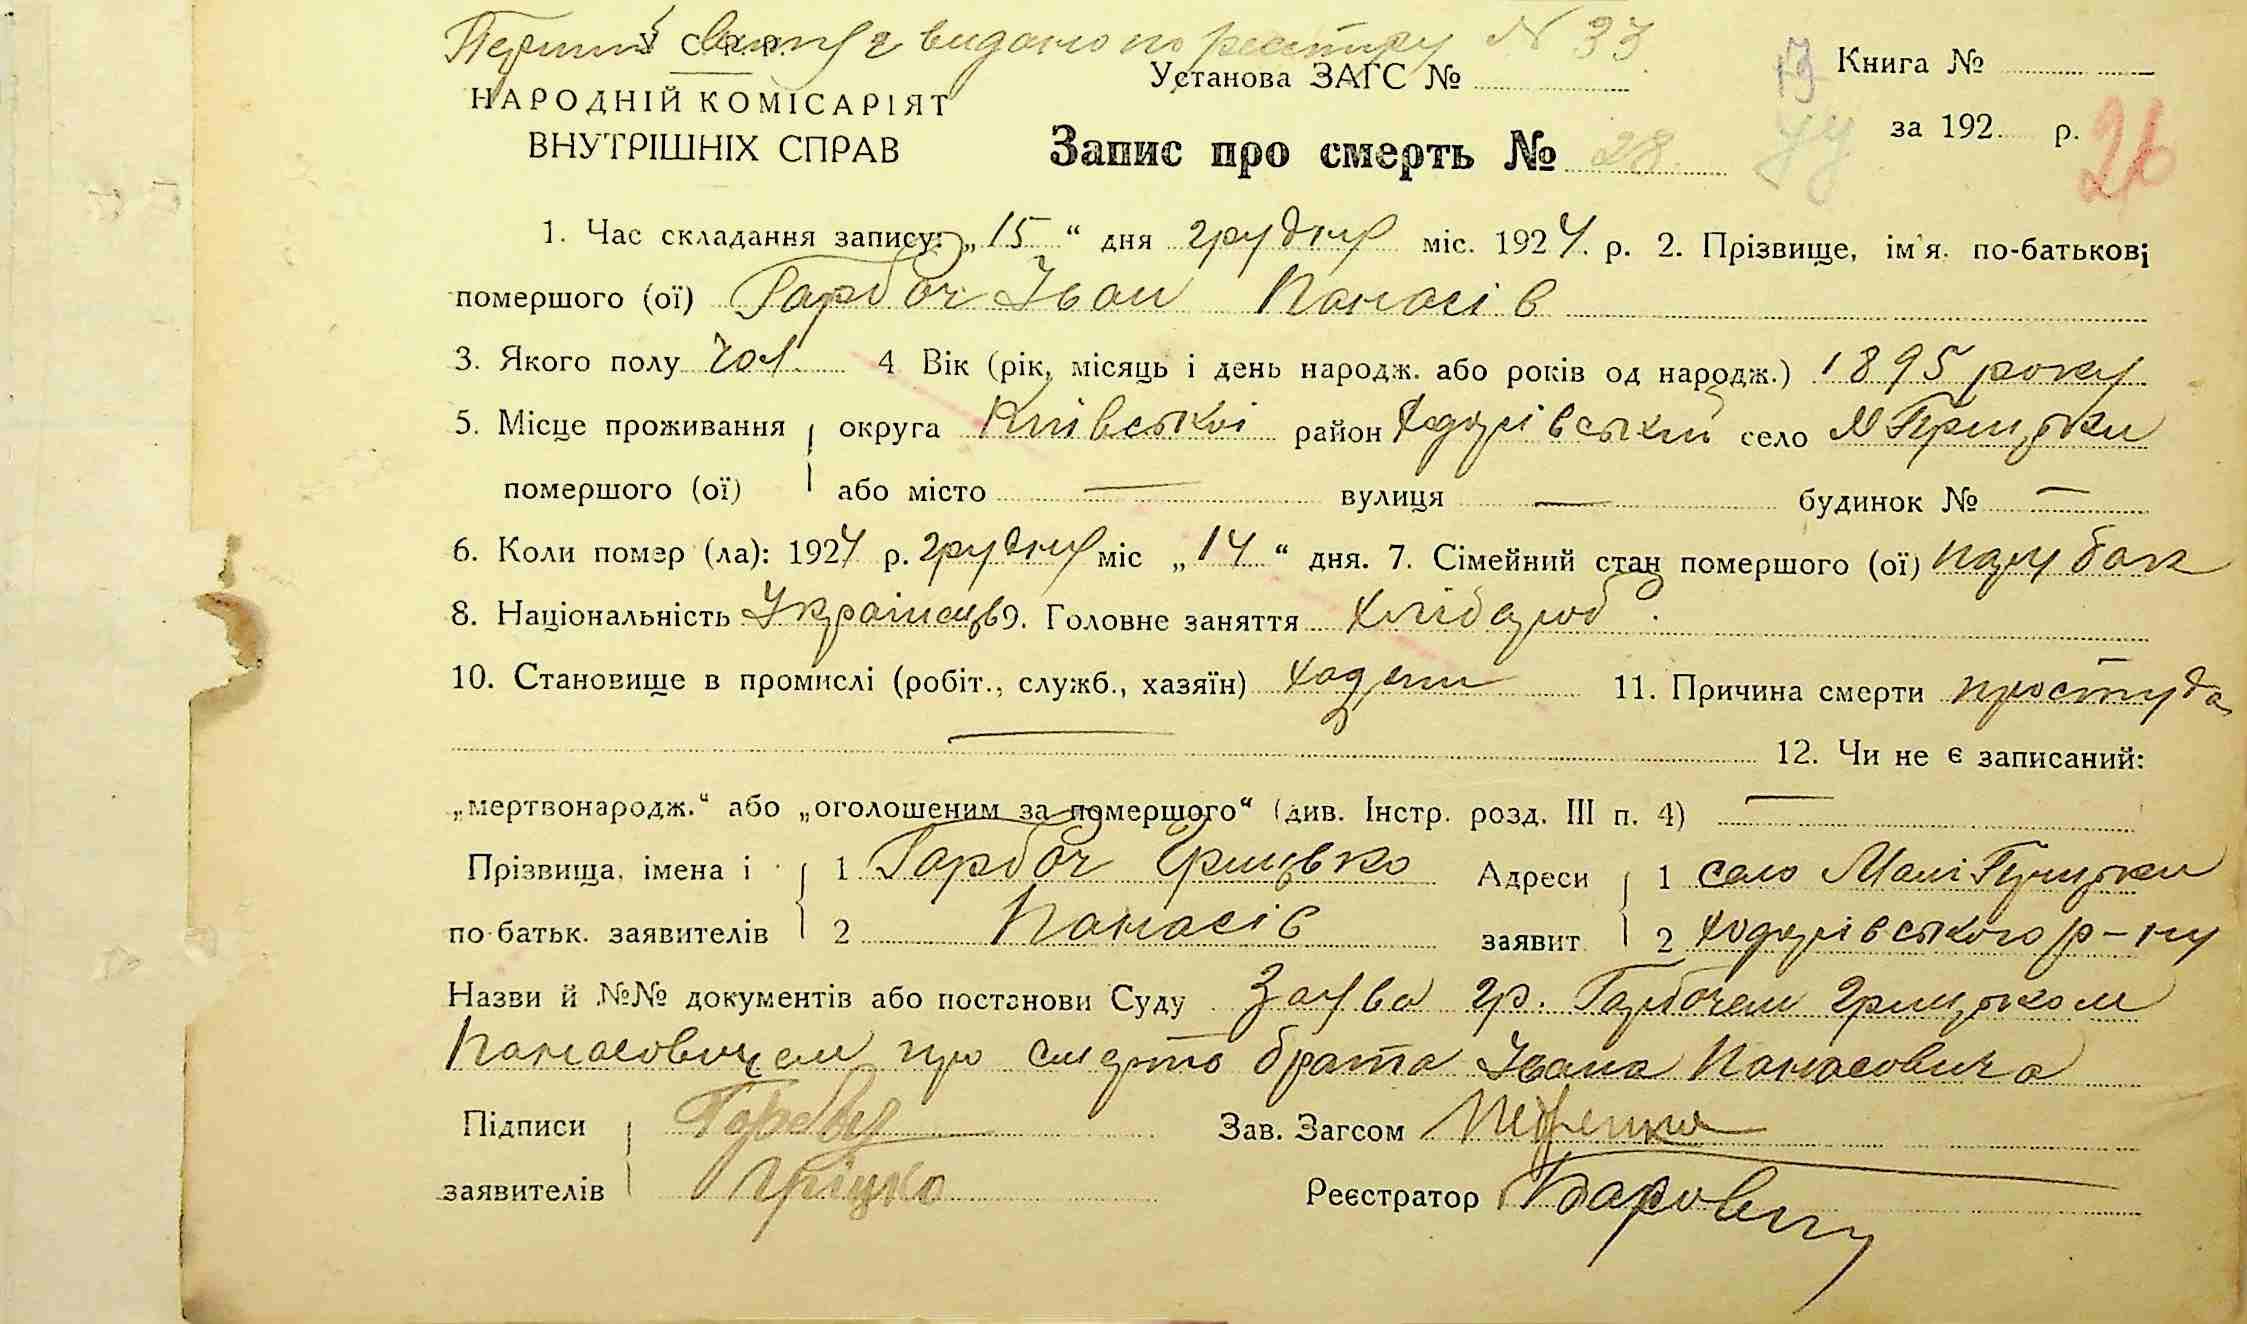 Перший витяг видано по реєстру № 33
У.С.Р.Р.
НАРОДНІЙ КОМІСАРІЯТ
ВНУТРІШНІХ СПРАВ
Установа ЗАГС №
Книга №
за 192 р. 26
Запис про смерть № 28
1. Час складання запису: „15“ дня грудня міс. 1924 р. 2. Прізвище, ім'я. по-батькові
помершого (ої) Гарбоч Іван Панасів
3. Якого полу чол. 4 Вік (рік, місяць і день народж. або років од народж.) 1895 року
5. Місце проживання округа Київської район Ходорівський село М Прицьки
помершого (ої) або місто — вулиця — будинок № —
6. Коли помер (ла): 1924 р. грудня міс „14“ дня. 7. Сімейний стан помершого (ої) парубок
8. Національність Українець 9. Головне заняття хлібороб.
10. Становище в промислі (робіт., служб., хазяїн) хазяїн 11. Причина смерти простуда
— 12. Чи не є записаний:
„мертвонародж.“ або „оголошеним за помершого“ (див. Інстр. розд. III п. 4) —
Прізвища, імена і 1 Гарбоч Грицько Адреси 1 село Малі Прицьки
по-батьк. заявителів 2 Панасів заявит. 2 Ходорівського р-ну
Назви й №№ документів або постанови Суду Заява гр. Гарбочем Грицьком
Панасовичем про смерть брата Івана Панасовича
Підписи Зав. Загсом
заявителів Гріцко Реєстратор